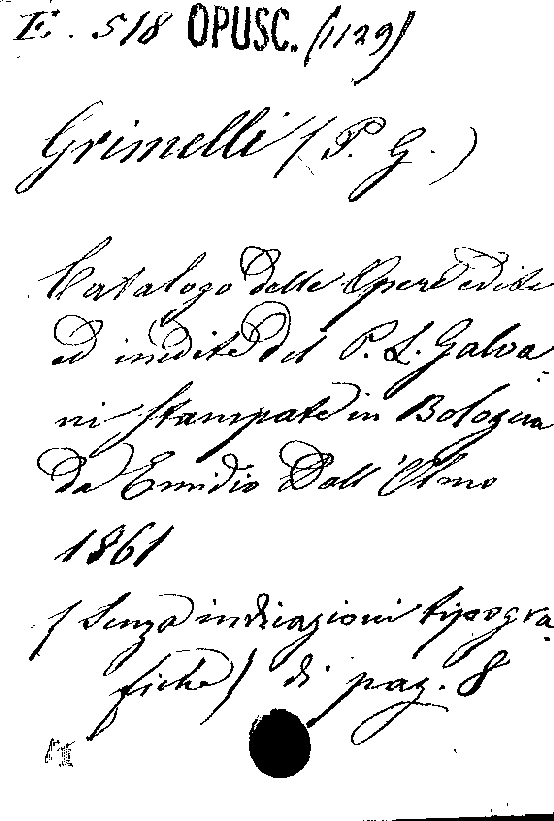 E. 518 OPUSC. (1129)
Grimelli (P. G.)
Catalogo delle Opere edite
ed inedite del P. L. Galva-
ni stampate in Bologna
da Emidio Dall'Olmo
1861
(Senza indicazioni tipogra-
fiche) di pag. 8